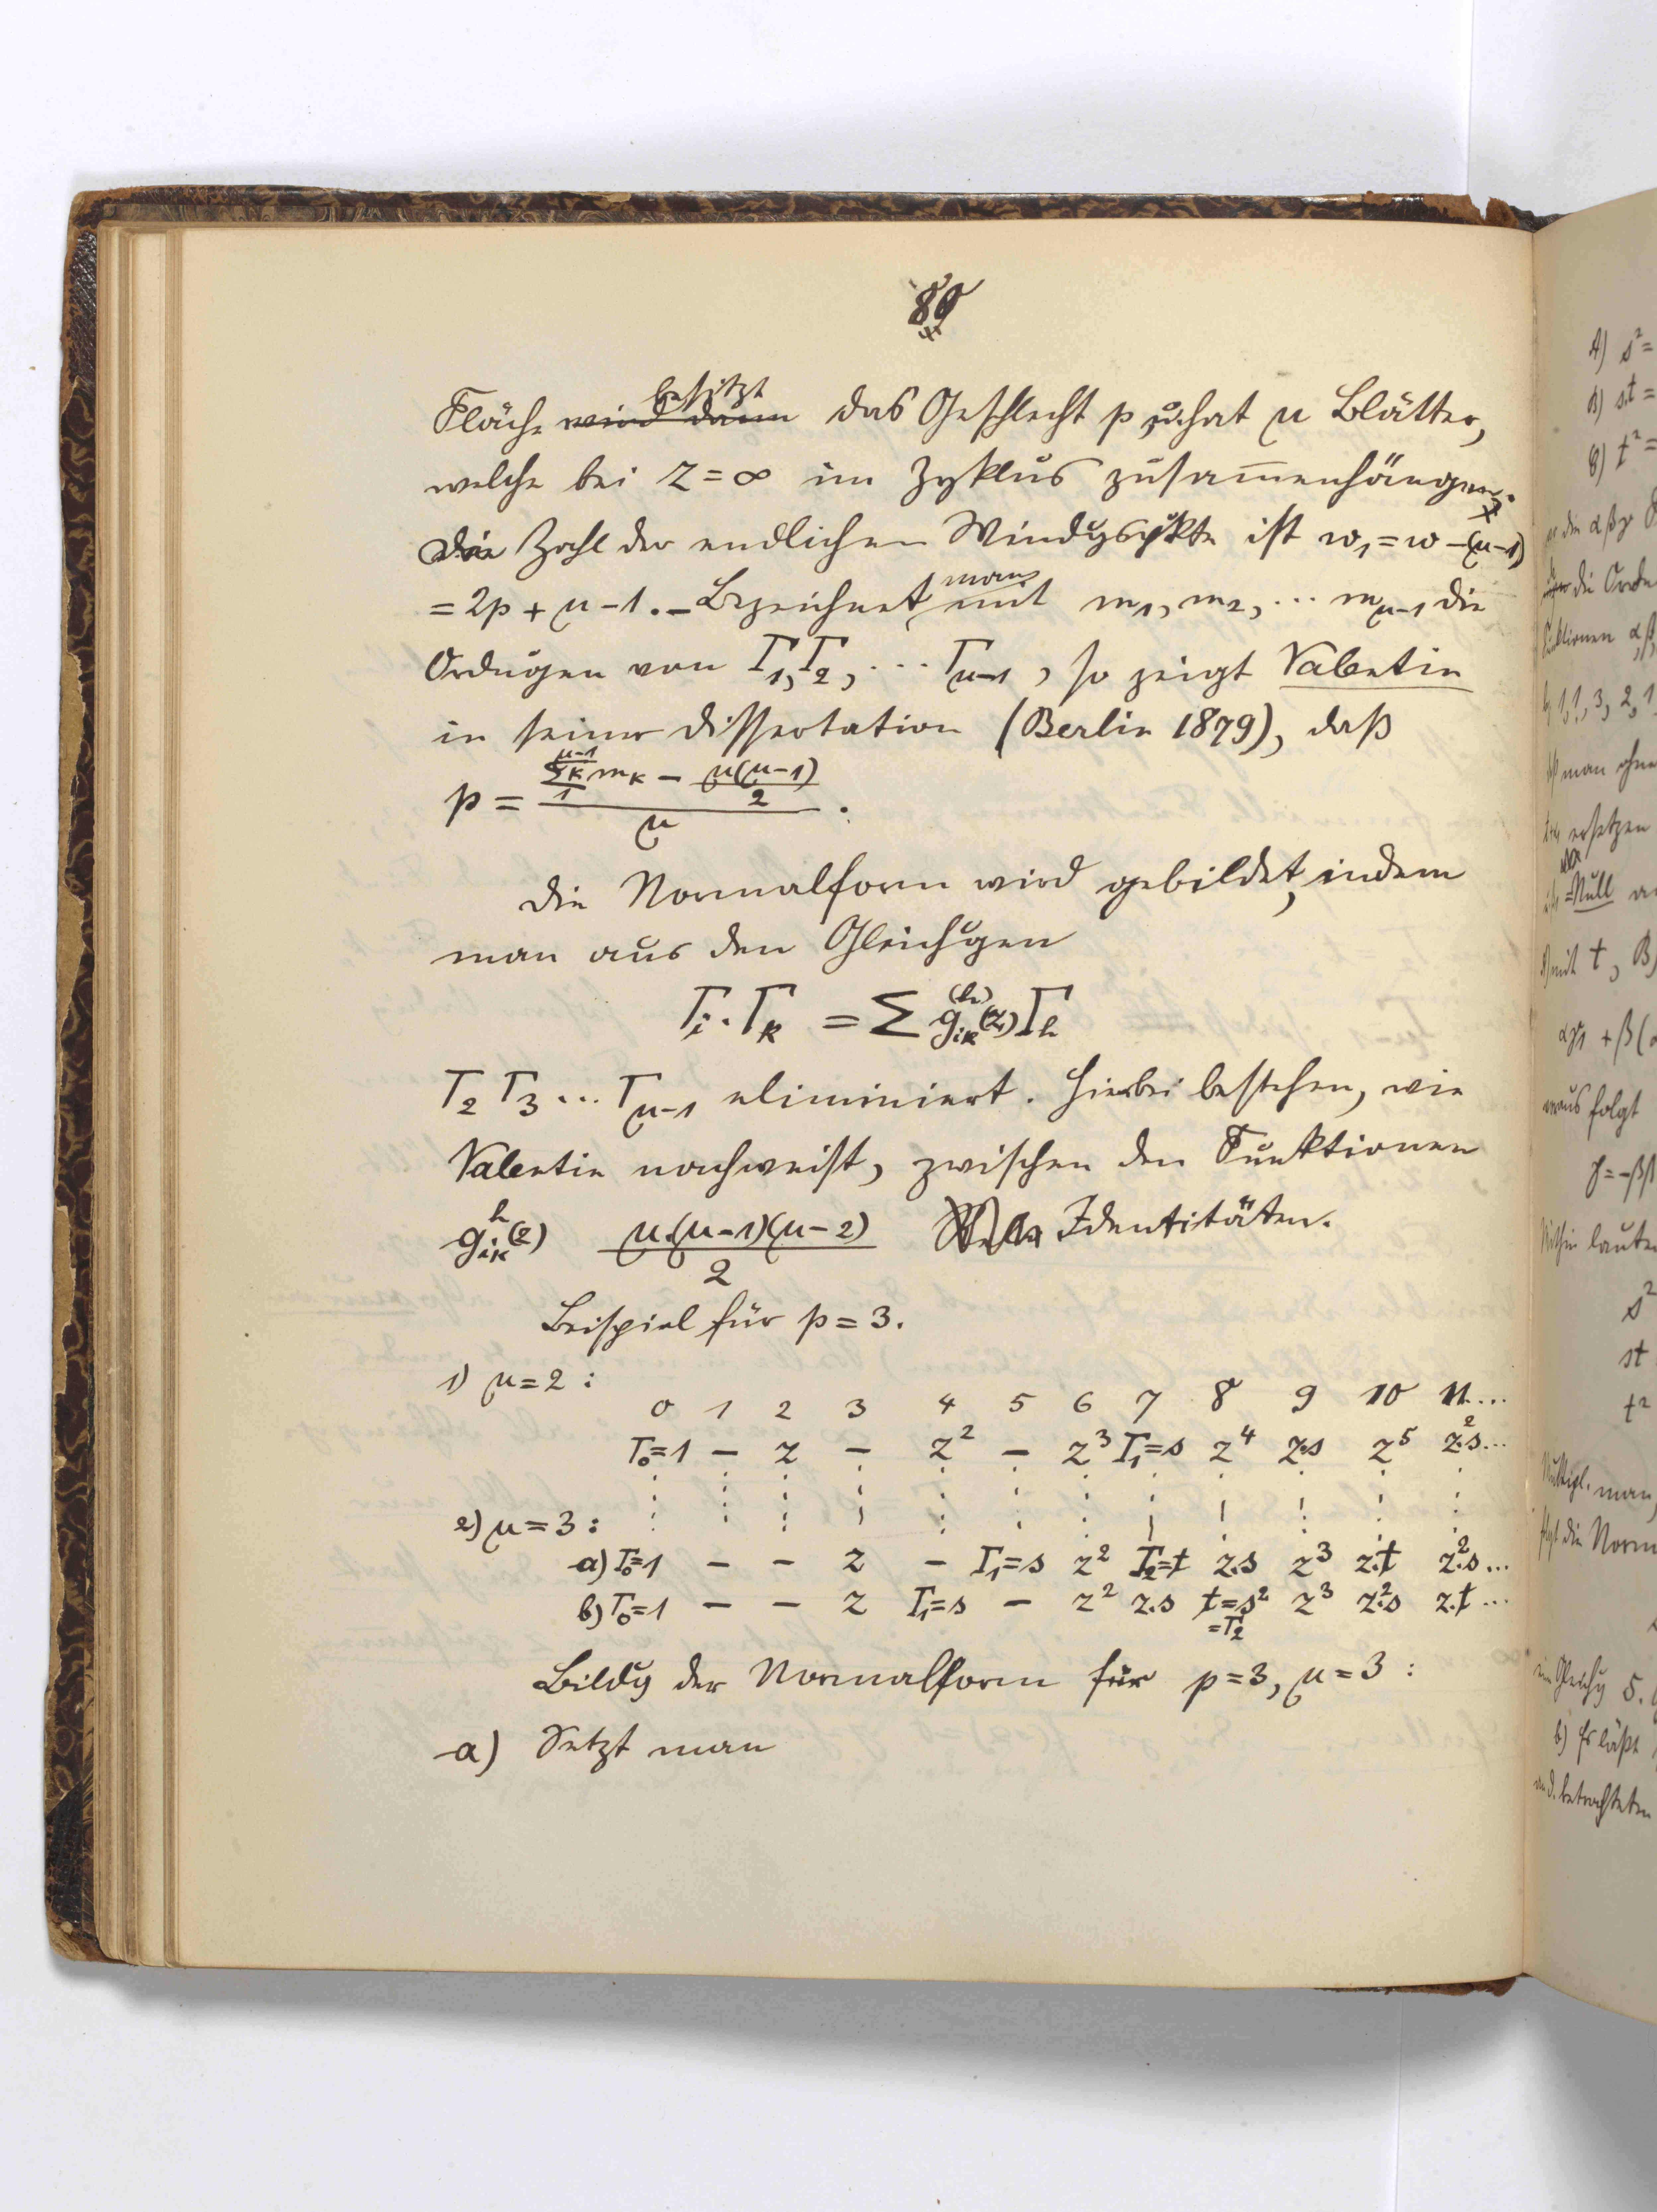 89
Fläche wird dann besitzt das Geschlecht p u. hat μ Blätter,
welche bei z = ∞ im Zyklus zusam̅enhängen.
Die Zahl der endlichen Windgspkte ist w₁ = w – (μ–1)
= 2p + μ – 1. – Bezeichnet man mit m₁, m₂, ... m_{μ–1} die
Ordngen von Γ₁, Γ₂, ... Γ_{μ–1}, so zeigt Valentin
in seiner Dissertation (Berlin 1879), daß
p = (Σ₁^{μ–1} κ m_κ – μ(μ–1)/2) / μ .
Die Normalform wird gebildet, indem
man aus den Gleichgen
Γ_i · Γ_k = Σ g_{ik}^{(h)}(z) Γ_h
Γ₂ Γ₃ ... Γ_{μ–1} eliminiert. Hierbei bestehen, wie
Valentin nachweist, zwischen den Funktionen
g_{ik}^{h}(z) μ(μ–1)(μ–2)/2 Identitäten.
Beispiel für p = 3.
1) μ = 2 :
0 1 2 3 4 5 6 7 8 9 10 11...
Γ₀=1 – z – z² – z³ Γ₁=s z⁴ z.s z⁵ z².s...
2) μ = 3 :
a) Γ₀=1 – – z – Γ₁=s z² Γ₂=t z.s z³ z.t z².s...
b) Γ₀=1 – – z Γ₁=s – z² z.s t=s² z³ z².s z.t...
=Γ₂
Bildg der Normalform für p = 3, μ = 3 :
a) Setzt man
A) s² =
B) s.t =
C) t² =
die Orde
man ohne
ersetzen
= Null
mit t, B)
folgt
lauten
s²
st
t²
man,
die Norm
5.
b) Es läßt
betrachteten